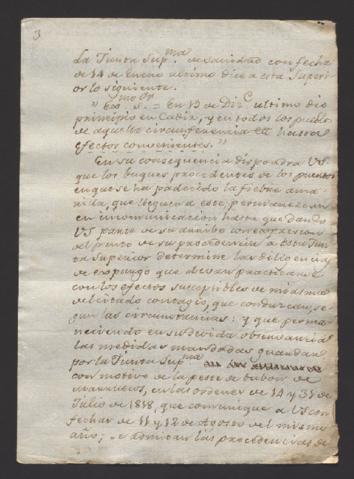 3
La Junta Sup.ma de Sanidad con fecha
de 14 de Enero ultimo dice a esta Superi-
or lo siguiente.
" Exmo. Sor. = En 13 de Dic.e ultimo dio
principio en Cadiz, y en todos los pueblos
de aquella circunferencia
efectos consecuentes."
En su consecuencia dispondra VS.
que los buques procedentes de los puertos
en que se ha padecido la fiebre ama-
rilla, que lleguen a ese, permanezcan
en incomunicacion hasta que dando
VS parte de su arribo con expresion
del punto de su procedencia a esta Jun-
ta Superior determine las diligencias
de expurgo que devan practicarse
con los efectos susceptibles de
del citado contagio, que conduzcan, se-
gun las circunstancias: y que perma-
neciendo en su devida observancia
las medidas mandadas guardar
por la Junta Sup.ma
con motivo de la peste de bubon de
Marruecos, en las ordenes de 14 y 31 de
Julio de 1818, que comunique a VS con
fechas de 11 y 12 de Agosto del mismo
año; se admitan las procedencias de